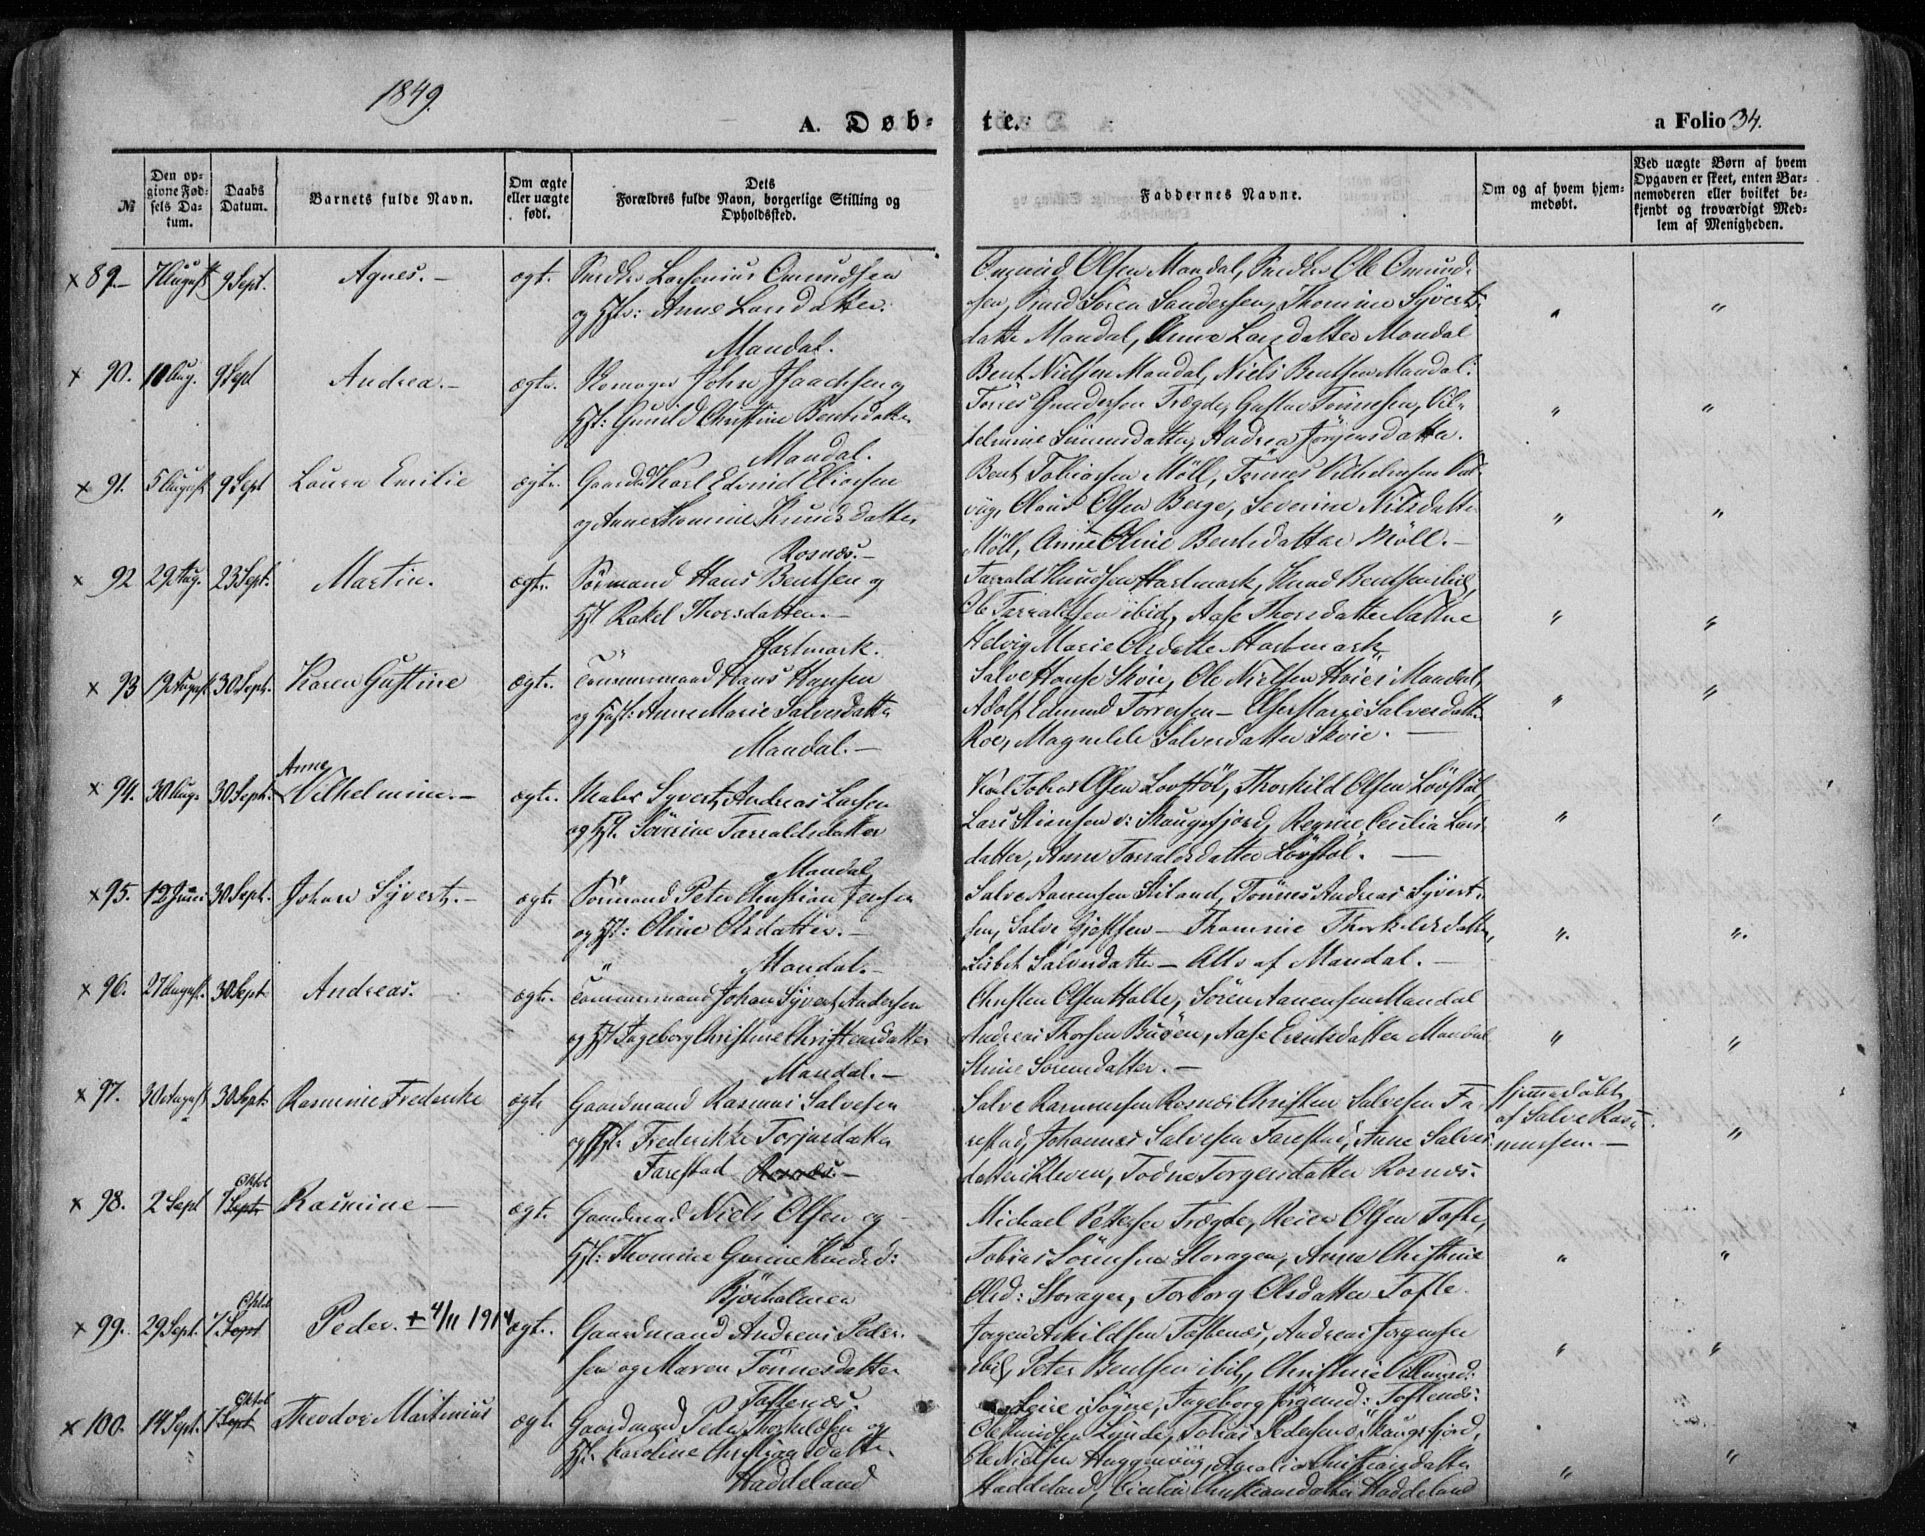 1849.
A. Døb- te.
a Folio 34.
№
Den opgivne Fødsels Datum.
Daabs Datum.
Barnets fulde Navn.
Om ægte eller uægte født.
Dets Forældres fulde Navn, borgerlige Stilling og Opholdssted.
Faddernes Navne.
Om og af hvem hjemmedøbt.
Ved uægte Børn af hvem Opgaven er skeet, enten Barnemoderen eller hvilket bekjendt og troværdigt Medlem af Menigheden.
x 89. 7 August 9 Sept. Agnes. - ægt. Snedker Omundsen
og Hst: Anne Larsdatter.
Mandal.
Omund Olsen Mandal, Snedker Ole Omund-
sen, Søren Sandersen, Thomine Syverts-
datter Mandal, Anne Larsdatter Mandal
" "
x 90. 10 Aug. 9 Sept Andrea. - ægte. John Isaachsen og
Hst: Gunild Christine Bentsdatter
Mandal.
Bent Nielsen Mandal, Niels Bentsen Mandal:
Gundersen Trægde, Gustav Tønnesen, Vil-
helmine Simonsdatter, Andrea Jørgensdatter.
" "
x 91. 5 August 9 Sept Laura Emilie ægte. Karl Edvind Eliasen
og Anne Thomine Knudsdatter
Rosnæs. -
Bent Tobiassen Møll, Tønnes Vilhelmsen
Olaus Olsen Berge, Severine Nilsdatter
Møll, Anne Oline Bentsdatter Møll. -
" "
x 92 29 Aug. 23 Sept. Martin. ægte. Sømand Hans Bentsen og
Hst Rakel Thorsdatter. -
Hartmark.
Tarrald Knudsen Hartmark, Knud Bentsen ibid,
Ole Tarraldsen ibid, Aase Thorsdatter Valtne
Marie Olsdatter Hartmark
" "
x 93 19 August 30 Sept. Karen Gustine ægte. Tømmermand Hans Hansen
og Hust: Anne Marie Salvesdatter
Mandal. -
Salve Hansen Skoie, Ole Nielsen Mandal,
Adolf Edmund Torresen - Marie Salvesdatter
Roe, Magnilde Salvesdatter Skoie. -
" "
x 94. 30 Aug. 30 Sept. Anne Vilhelmine. - ægte. Maler Syvert Andreas Larsen
og Hst. Sørine Tarraldsdatter
Mandal
Karl Tobias Olsen Thorkild Olsen
Lars Stiansen v: Skaugsfjord, Regine Cecilia Lars-
datter, Anne Tarraldsdatter
" "
x 95. 12 Juni 30 Sept. Johan Syvert. - ægte. Sømand Peter Christian Jensen
og Hst: Oline Olsdatter. -
Mandal. -
Salve Aanensen Stiland, Tønnes Andreas Syvert-
sen, Salve - Thomine Thorkildsdatter,
Lisbet Salvesdatter - Alle af Mandal. -
" "
x 96. 27 August. 30 Sept Andreas. ægte. Tømmermand Johan Syvert Andersen
og Hst Ingeborg Christine Christensdatter
Mandal. -
Christen Olsen Halte, Søren Aanensen Mandal
Andreas Thorsen Buøen, Aase Mandal
Stine Sørensdatter. -
" "
x 97. 30 August 30 Sept. Rasmine Frederike ægte Gaardmand Rasmus Salvesen
og Hst. Frederikke Torjusdatter
Farestad Rosnæs. -
Salve Rasmussen Rosnæs, Christen Salvesen Fa-
restad, Johannes Salvesen Farestad, Anne Salves-
datter Kleven, Todne Torgersdatter Rosnæs.
hjemmedøbt
af Salve Ras-
mussen. -
"
x 98. 2 Sept 7 Sept. Oktob Rasmine - ægt. Gaardmand Niels Olsen og
Hst: Thomine Gurine Knudsd:
Bjørholmen
Michael Pettersen Trægde, Reier Olsen Tofte,
Tobias Sørensen Storagen, Anna Christine
Olsd: Storagen, Torborg Olsdatter Tofte.
" "
x 99. 29 Sept. 7 Sept Oktob Peder. + 4/11 1914 ægt. Gaardmand Andreas Peder-
sen og Maren Tønnesdatter
Toftenæs.
Jørgen Askildsen Toftenæs, Andreas Jørgensen
ibid, Peter Bentsen ibid, Christine
i Sogne, Ingeborg Jørgensd: Toftenæs:
" "
x 100. 14 Sept. 7 Sept Oktob Theodor Martinius ægt. Gaardmand Peder Thorkildsen og
Hst. Karoline Christiansdatter
Haddeland
Ole Lunde, Tobias Pedersen Skaugsfjord,
Ole Nielsen Amalia Christiansdatter
Haddeland, Cecilia Christiansdatter Haddeland
" "